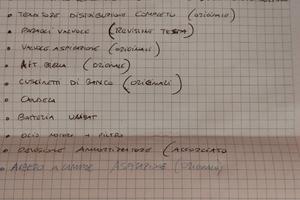 • TENDITORE DISTRIBUZIONE COMPLETO (ORIGINALE)
• PARAOLI VALVOLE (REVISIONE TESTA)
• VALVOLE ASPIRAZIONE (ORIGINALI)
• KIT BIELLA (ORIGINALE)
• CUSCINETTI DI BANCO (ORIGINALI)
• CANDELA
• BATTERIA
• OLIO MOTORE + FILTRO
• REVISIONE AMMORTIZZATORE (
• ALBERO A CAMME ASPIRAZIONE (ORIGINALE)